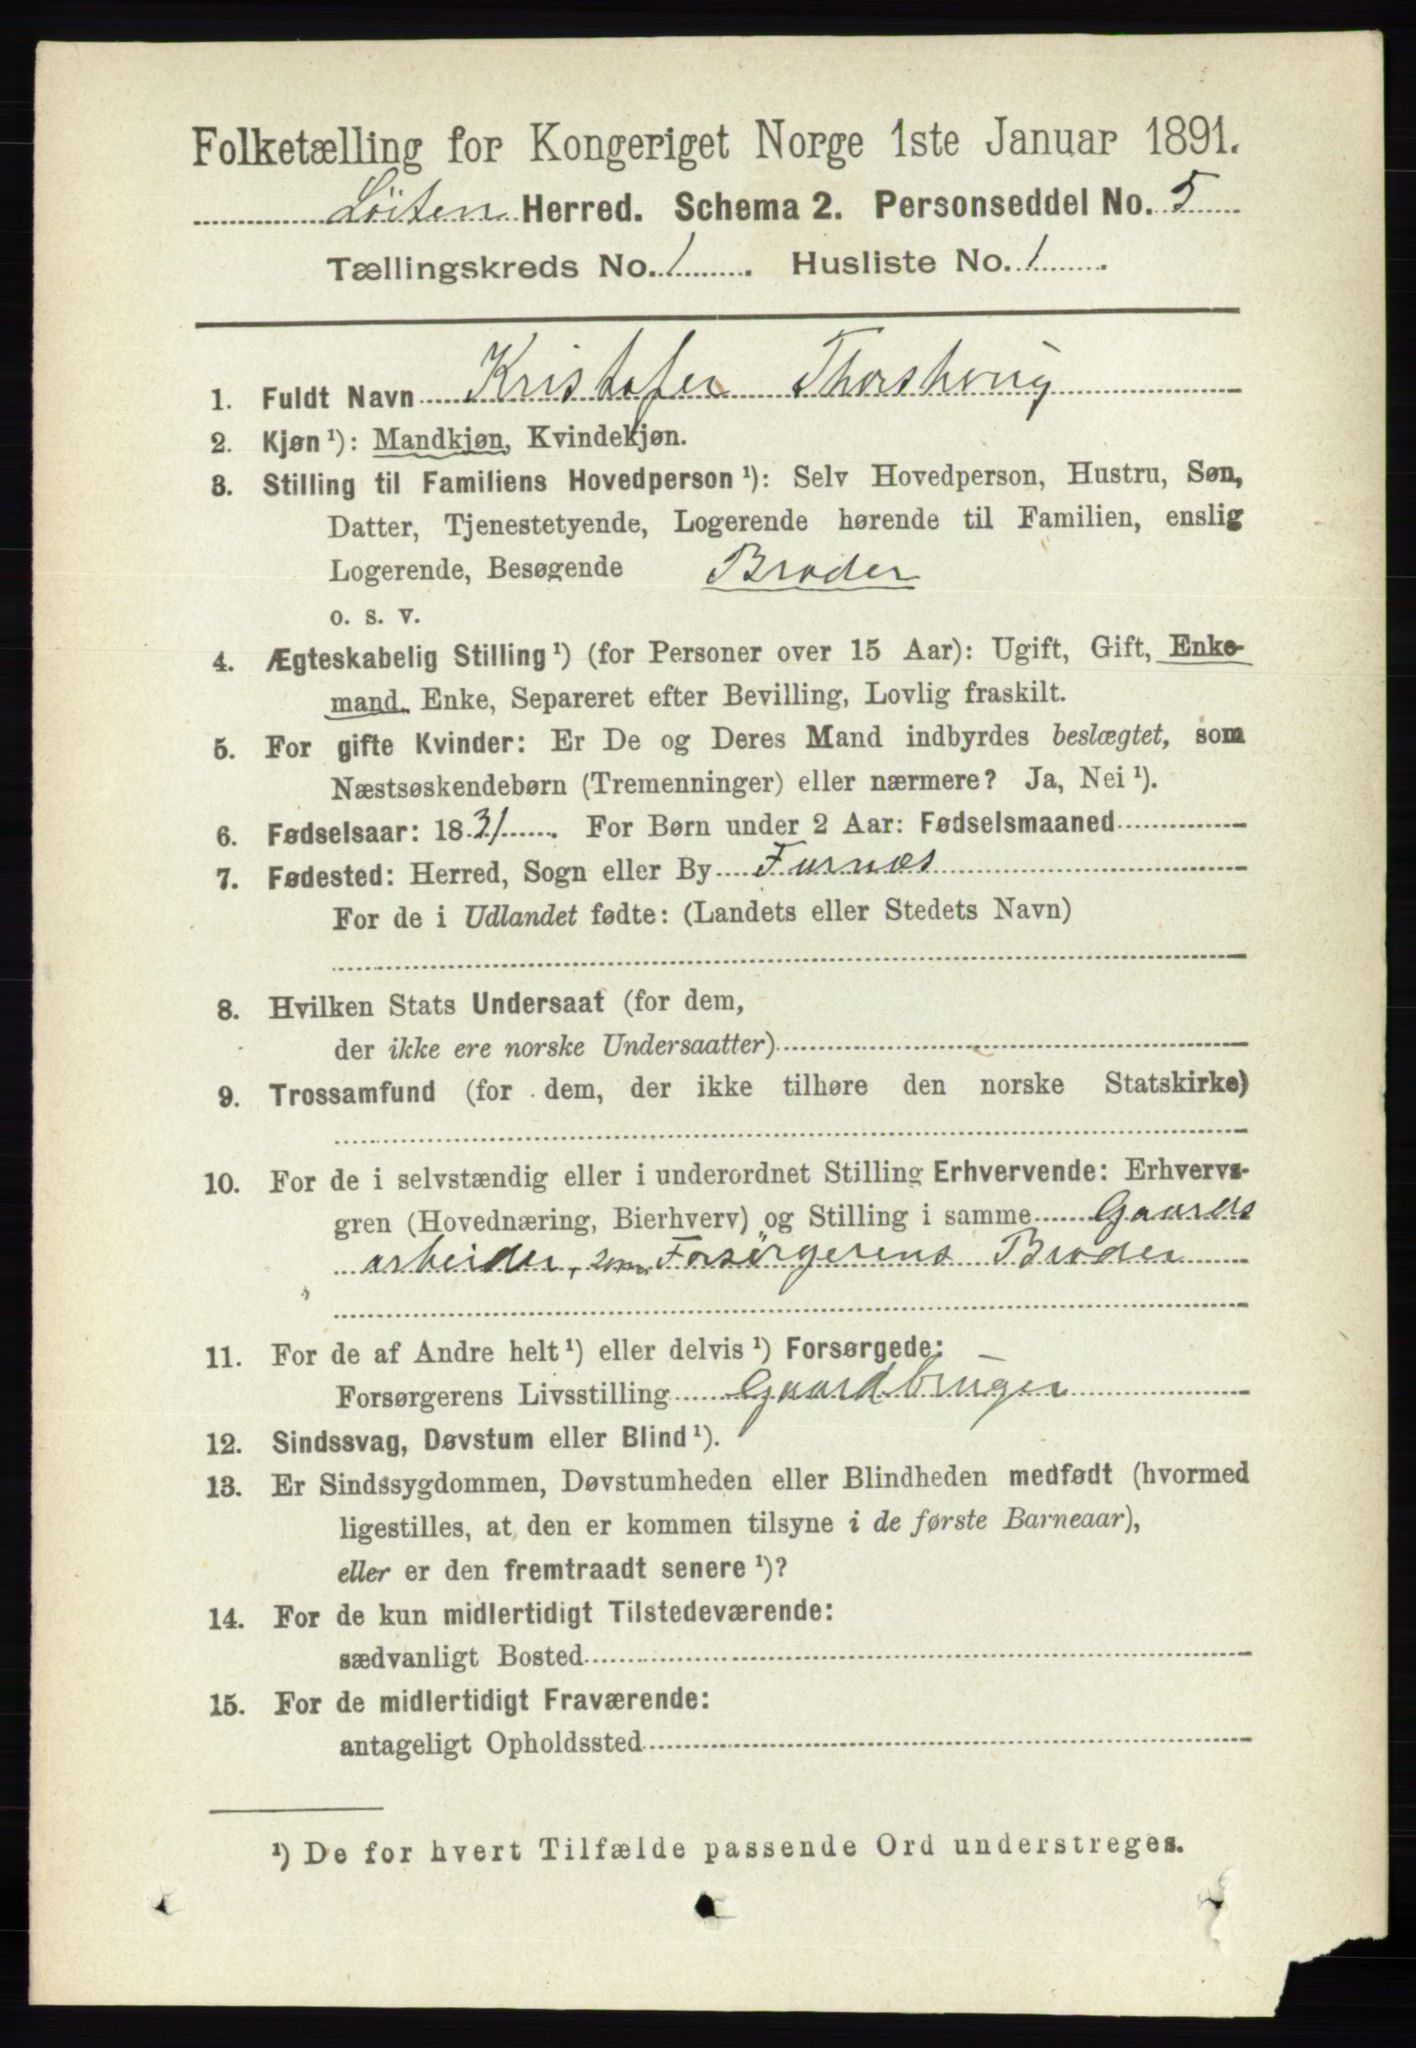 Folketælling for Kongeriget Norge 1ste Januar 1891.
Löiten Herred. Schema 2. Personseddel No. 5
Tællingskreds No. 1. Husliste No. 1.
1. Fuldt Navn Kristofer Thorshoug
2. Kjøn ¹): Mandkjøn, Kvindekjøn.
3. Stilling til Familiens Hovedperson ¹): Selv Hovedperson, Hustru, Søn,
Datter, Tjenestetyende, Logerende hørende til Familien, enslig
Logerende, Besøgende Broder
o. s. v.
4. Ægteskabelig Stilling ¹) (for Personer over 15 Aar): Ugift, Gift, Enke-
mand, Enke, Separeret efter Bevilling, Lovlig fraskilt.
5. For gifte Kvinder: Er De og Deres Mand indbyrdes beslægtet, som
Næstsøskendebørn (Tremenninger) eller nærmere? Ja, Nei ¹).
6. Fødselsaar: 1831. For Børn under 2 Aar: Fødselsmaaned
7. Fødested: Herred, Sogn eller By Furnæs
For de i Udlandet fødte: (Landets eller Stedets Navn)
8. Hvilken Stats Undersaat (for dem,
der ikke ere norske Undersaatter)
9. Trossamfund (for dem, der ikke tilhøre den norske Statskirke)
10. For de i selvstændig eller i underordnet Stilling Erhvervende: Erhvervs-
gren (Hovednæring, Bierhverv) og Stilling i samme Gaards
arbeider, som Forsörgerens Broder
11. For de af Andre helt ¹) eller delvis ¹) Forsørgede:
Forsørgerens Livsstilling Gaardbruger
12. Sindssvag, Døvstum eller Blind ¹).
13. Er Sindssygdommen, Døvstumheden eller Blindheden medfødt (hvormed
ligestilles, at den er kommen tilsyne i de første Barneaar),
eller er den fremtraadt senere ¹)?
14. For de kun midlertidigt Tilstedeværende:
sædvanligt Bosted
15. For de midlertidigt Fraværende:
antageligt Opholdssted
¹) De for hvert Tilfælde passende Ord understreges.